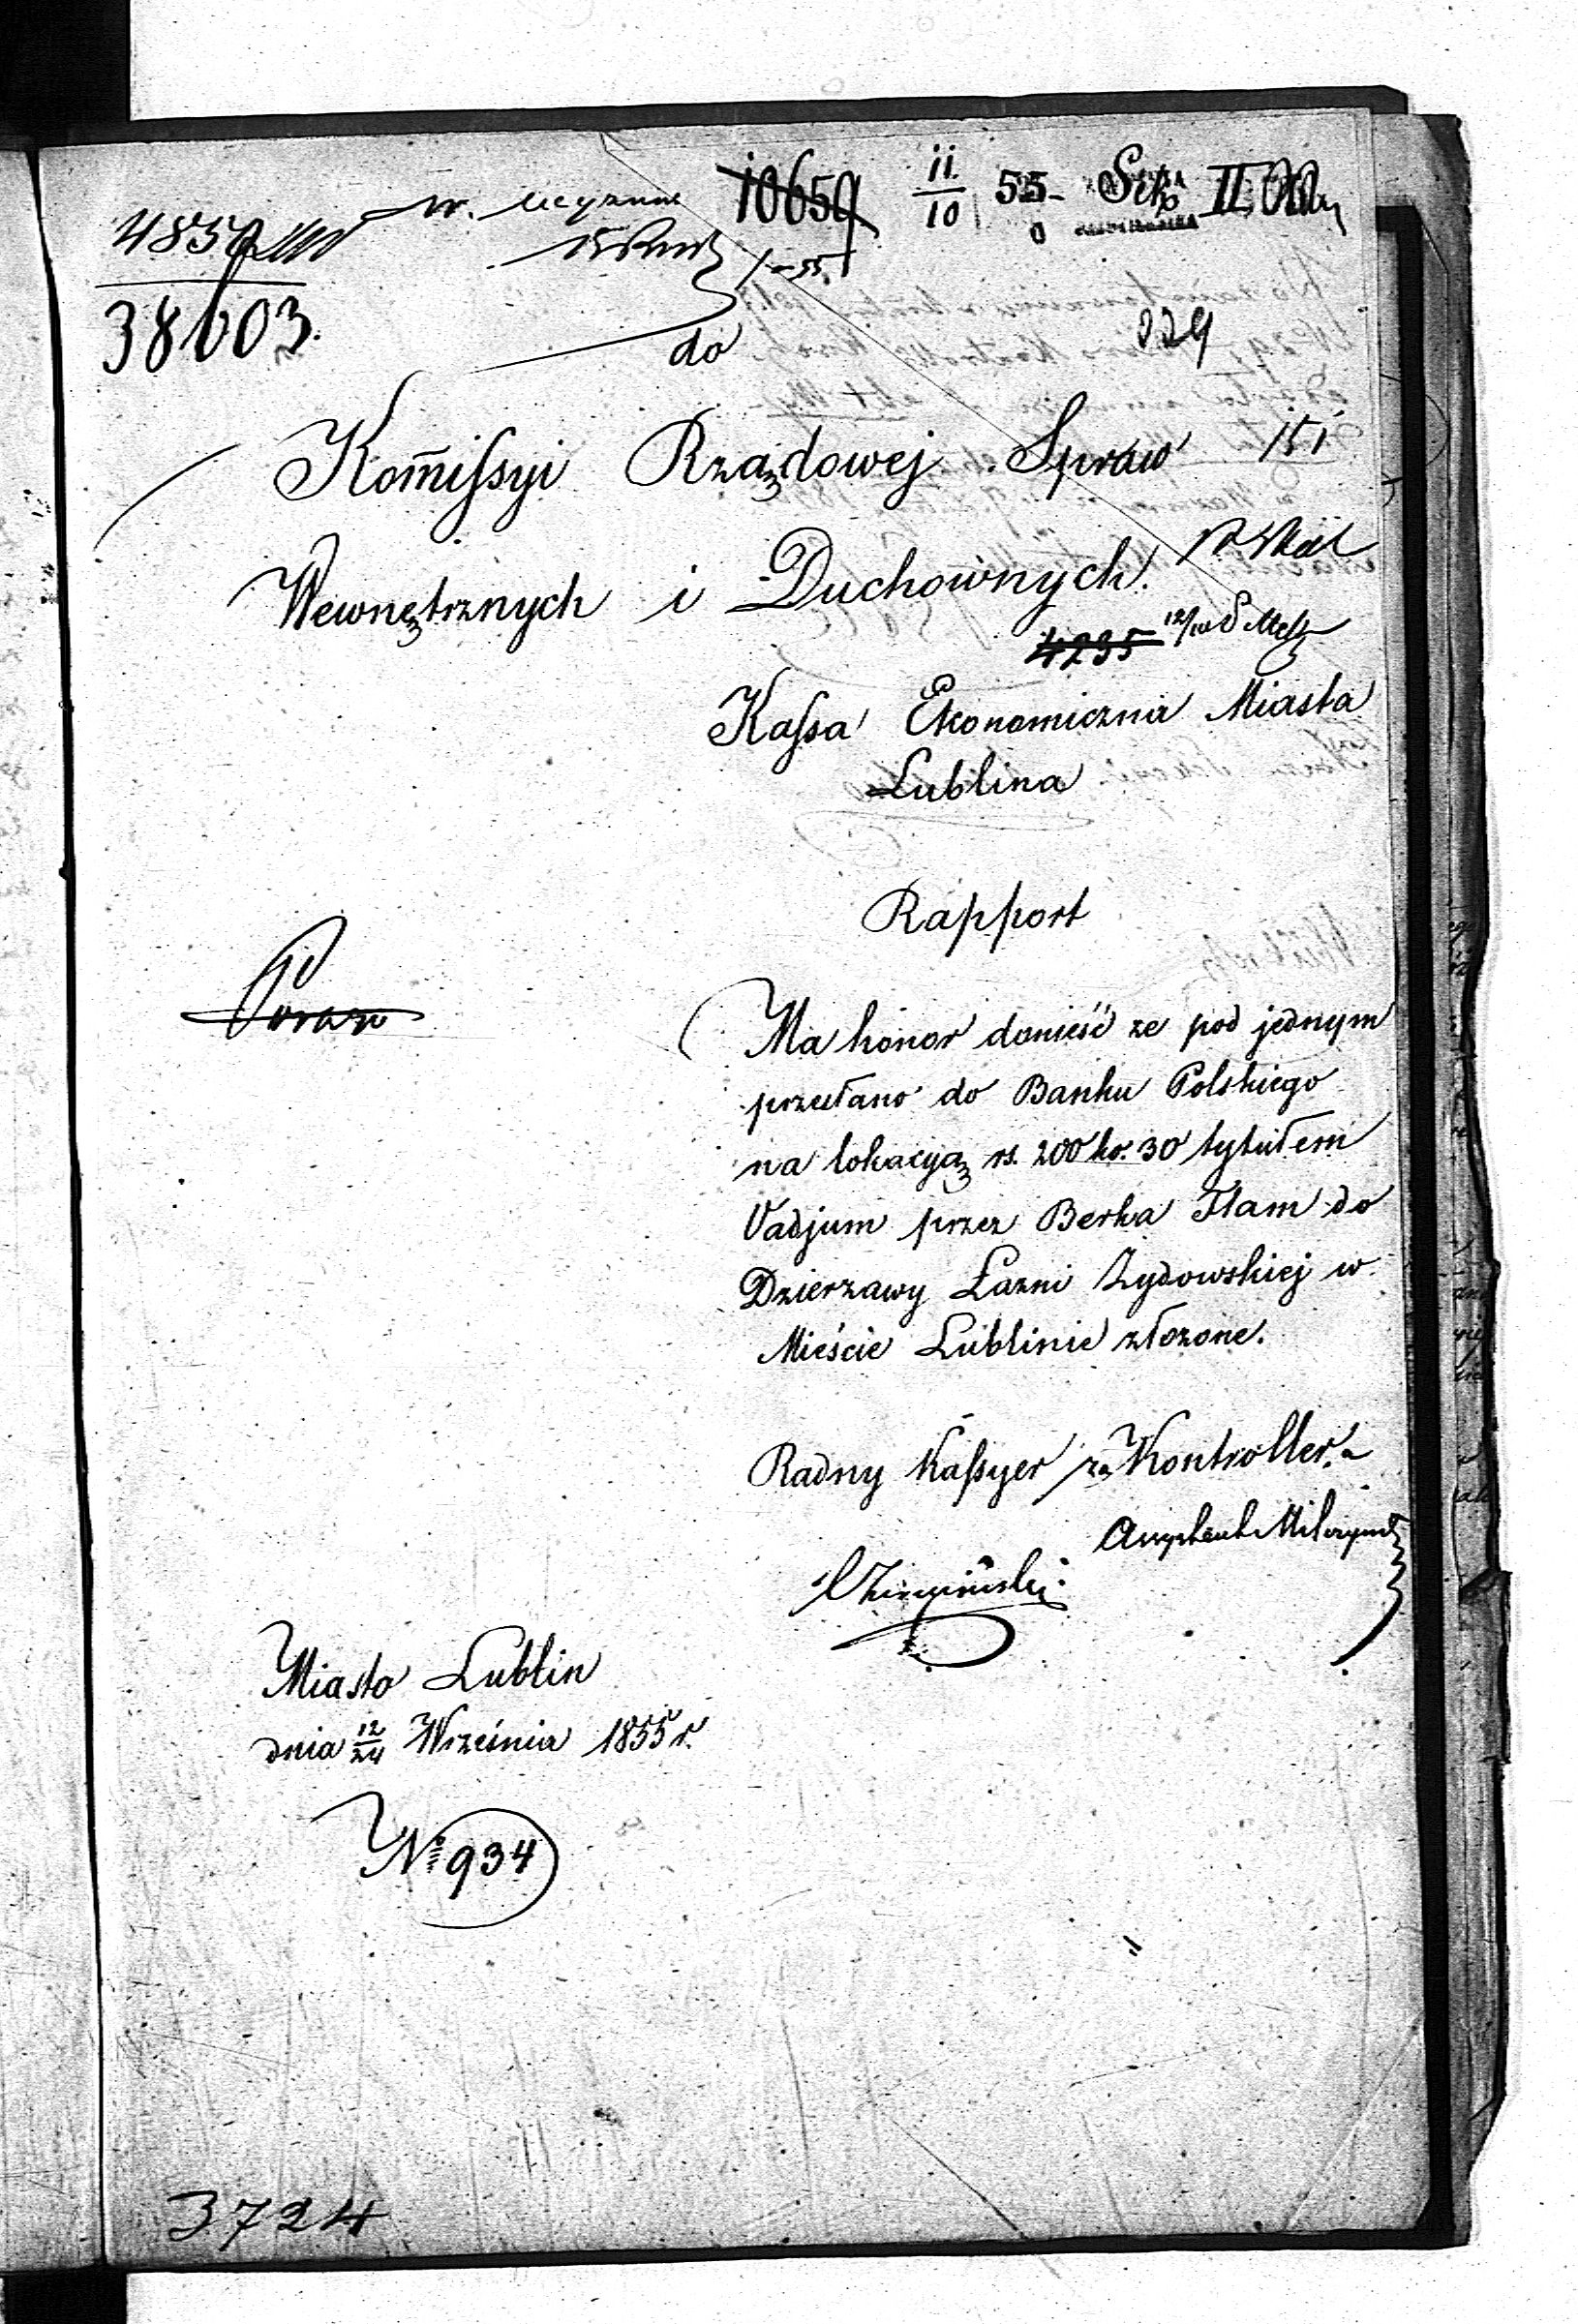 10659 11/10 55 Sek II
4850
38603.
do
229
Kom̄issyi Rządowej Spraw
151
Wewnętrznych i Duchownych.
4235 12/10
Kassa Ekonomiczna Miasta
Lublina
Rapport
Ma honor donieść ze pod jednym
przesłano do Banku Polskiego
na lokacyą rs. 200 ko. 30 tytułem
Vadjum przez Berka Flam do
Dzierzawy Łazni Zydowskiej w
Mieście Lublinie złozone.
Radny Kassyer za Kontrollera
Miasto Lublin
dnia 12/24 Września 1855 r.
No 934
3724